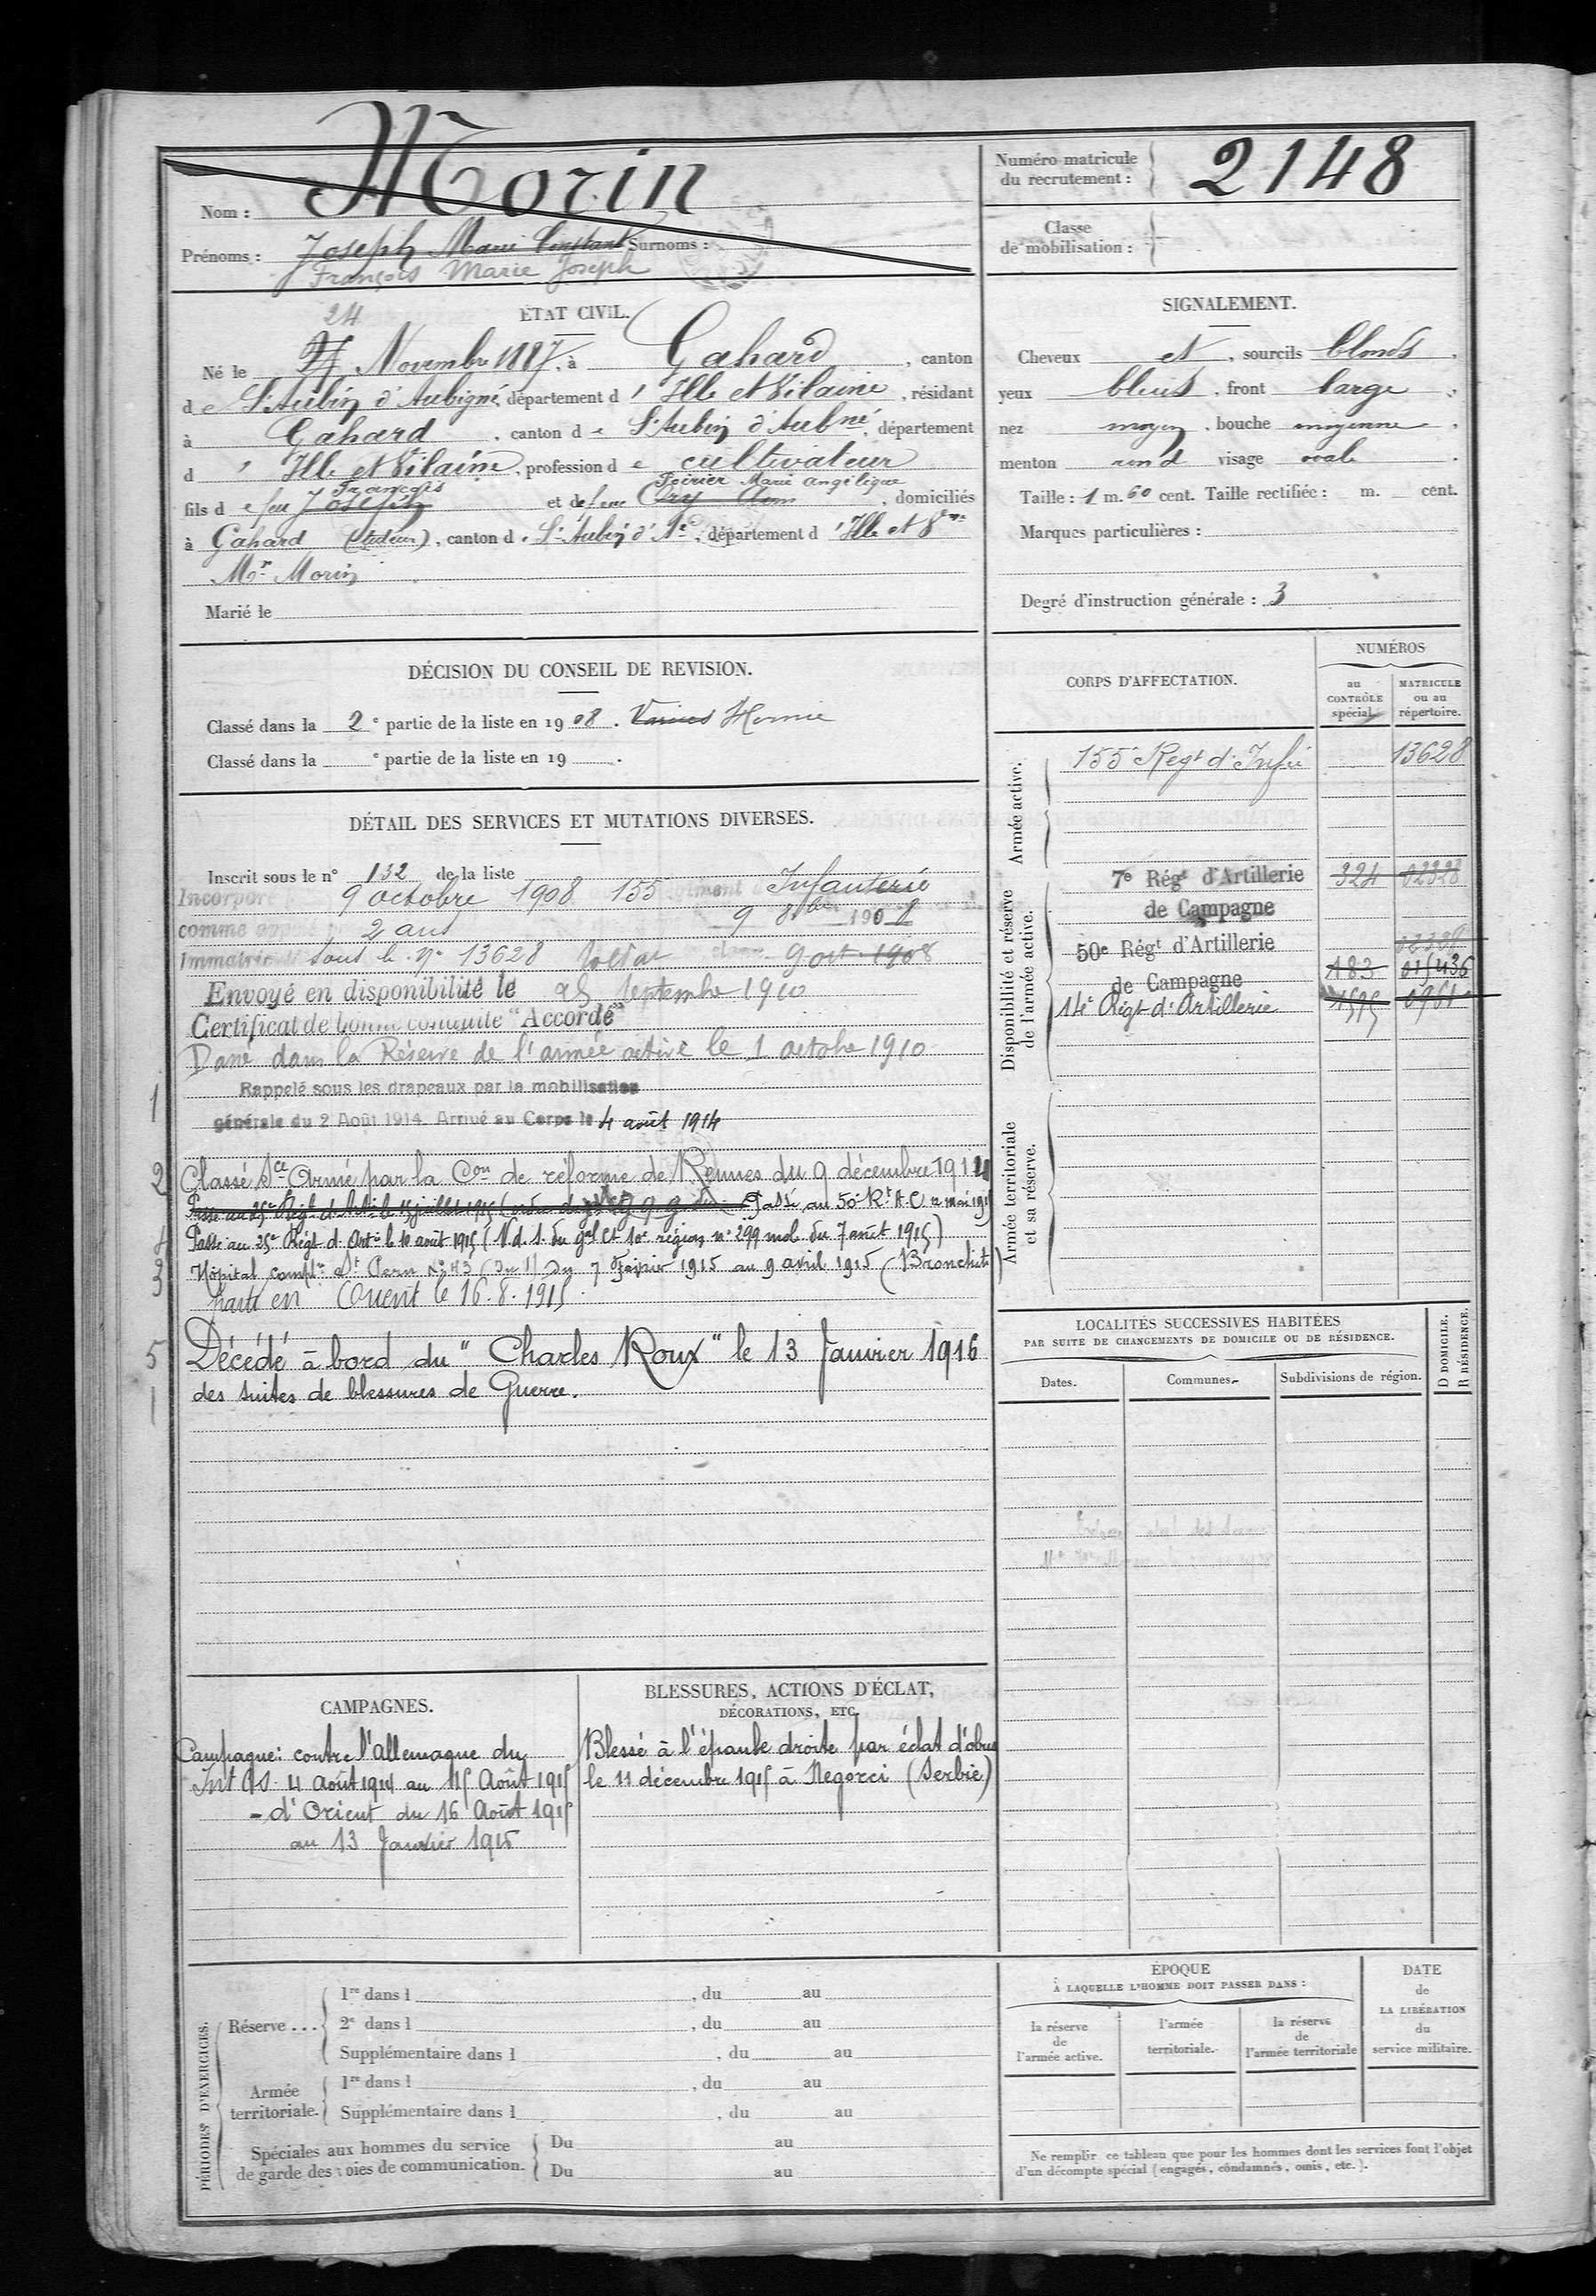 Nom : Morin
Numéro matricule du recrutement : 2148
Prénoms : Joseph Marie Constant Surnoms :
François Marie Joseph
Classe de mobilisation :
ÉTAT CIVIL.
24
Né le Novembre 1887, à Gahard, canton
de St Aubin d'Aubigné, département d'Ille et Vilaine, résidant
à Gahard, canton de St Aubin d'Aubné, département
d'Ille et Vilaine, profession de cultivateur
François Poirier Marie Angélique
fils de feu Joseph et de feue , domiciliés
à Gahard (tuteur), canton de St Aubin d'Aé, département d'Ille et Vne
Mr Morin
Marié le
SIGNALEMENT.
Cheveux et , sourcils blonds ,
yeux bleus , front large ,
nez moyen , bouche moyenne ,
menton rond visage ovale .
Taille : 1 m. 60 cent. Taille rectifiée : m. cent.
Marques particulières :
Degré d'instruction générale : 3
DÉCISION DU CONSEIL DE REVISION.
Classé dans la 2e partie de la liste en 1908. Hernie
Classé dans la e partie de la liste en 19 .
DÉTAIL DES SERVICES ET MUTATIONS DIVERSES.
Inscrit sous le n° 132 de la liste
Incorporé 9 octobre 1908 155 Infanterie
comme 2 ans 9 8bre 1908
sous le n° 13628 soldat 9 oct. 1908
Envoyé en disponibilité le 25 septembre 1910
Certificat de bonne conduite "Accordé"
dans la Réserve de l'armée active le 1 octobre 1910
1 Rappelé sous les drapeaux par la mobilisation
générale du 2 Août 1914. Arrivé au Corps le 4 août 1914
2 Classé Sce Armé par la Con de réforme de Rennes du 9 décembre 1914
Passé au 25e Régt d'Artie le 15 juillet 1915 Passé au 50e Rt A C 12 mai 1915
4 Passé au 25e Régt d'Artie le 10 août 1915 (N. d. S. du gal Ct 10e région n° 299 mob. du 7 août 1915)
3 Hôpital complre St Pern n° 43 du 7 Février 1915 au 9 avril 1915 (Bronchite)
Parti en Orient le 16.8.1915
5 Décédé à bord du "Charles Roux" le 13 Janvier 1916
1 des suites de blessures de Guerre.
CORPS D'AFFECTATION.
NUMÉROS
au CONTRÔLE spécial.
MATRICULE ou au répertoire.
Armée active.
155e Regt d'Infie 13628
Disponibilité et réserve de l'armée active.
7e Régt d'Artillerie de Campagne 324 02328
50e Régt d'Artillerie de Campagne 02328
183 015436
14e Régt d'Artillerie 1595 0961
Armée territoriale et sa réserve.
LOCALITÉS SUCCESSIVES HABITÉES
PAR SUITE DE CHANGEMENTS DE DOMICILE OU DE RÉSIDENCE.
Dates. Communes. Subdivisions de région.
D DOMICILE.
R RÉSIDENCE.
CAMPAGNES.
Campagne: contre l'allemagne du
Int as 4 août 1914 au 15 Août 1915
- d'Orient du 16 Août 1915
au 13 Janvier 1916
BLESSURES, ACTIONS D'ÉCLAT,
DÉCORATIONS, ETC.
Blessé à l'épaule droite par éclat d'obus
le 11 décembre 1915 à Negorci (Serbie)
PÉRIODES D'EXERCICES.
Réserve ...
1re dans l , du au
2e dans l , du au
Supplémentaire dans l , du au
Armée territoriale.
1re dans l , du au
Supplémentaire dans l , du au
Spéciales aux hommes du service
de garde des voies de communication.
Du au
Du au
ÉPOQUE
À LAQUELLE L'HOMME DOIT PASSER DANS :
la réserve de l'armée active.
l'armée territoriale.
la réserve de l'armée territoriale
DATE de LA LIBÉRATION du service militaire.
Ne remplir ce tableau que pour les hommes dont les services font l'objet
d'un décompte spécial (engagés, condamnés, omis, etc.).